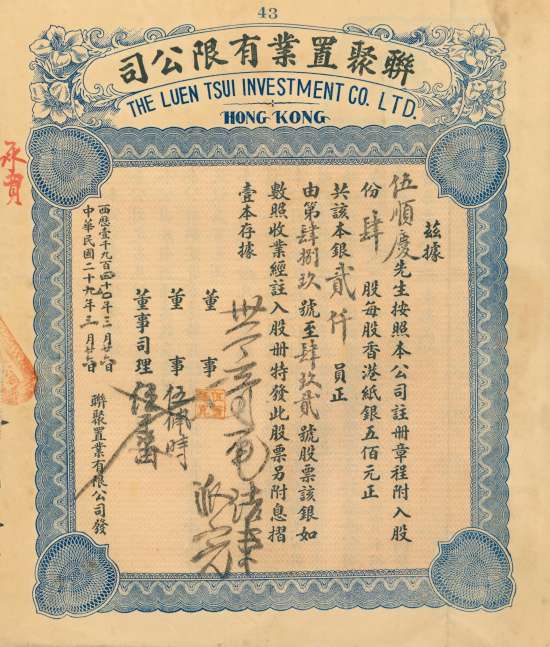 43
司公限有業置聚聯
THE LUEN TSUI INVESTMENT CO. LTD.
HONG KONG
茲據
伍順慶先生按照本公司註册章程附入股
份肆股每股香港紙銀五佰元正
共該本銀貳仟員正
由第肆捌玖號至肆玖貳號股票該銀如
數照收業經註入股册特發此股票另附息摺
壹本存據
董事
董事伍佩時
董事司理
西歷壹千九百四十年三月廿六日
中華民國二十九年三月廿六日
聯聚置業有限公司發